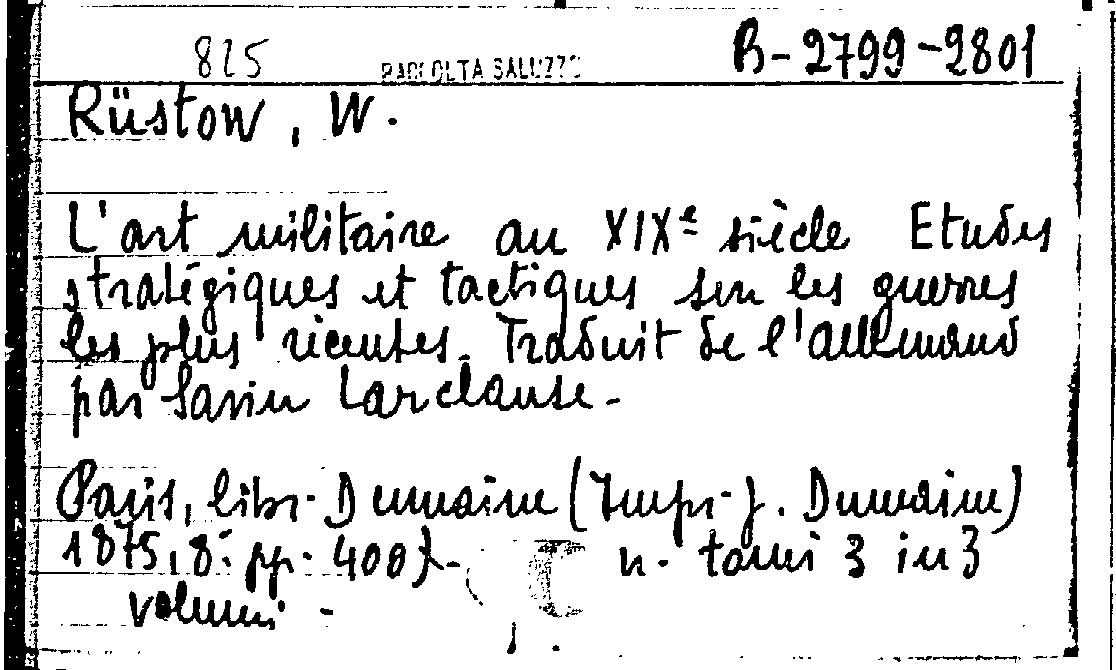 825 RACCOLTA SALUZZO B-2799-2801
Rüstow, W.
L'art militaire au XIXe siècle Etudes
stratégiques et tactiques sur les guerres
les plus récentes. Traduit de l'allemand
par Savin Larclause.
Paris, libr. Dumaine (Impr. J. Dumaine)
1875, 8° pp. 400 n. tomi 3 in 3
volumi -